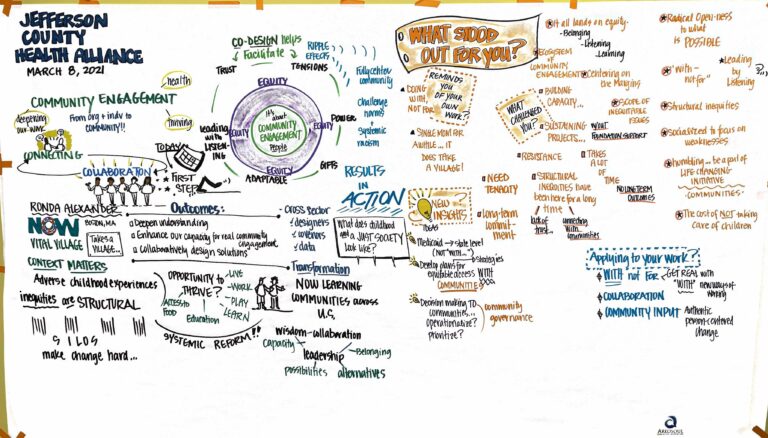 JEFFERSON
COUNTY
HEALTH ALLIANCE
MARCH 8, 2021
COMMUNITY ENGAGEMENT
health
thriving
From org + indiv to
COMMUNITY!!
deepening
our work
CONNECTING
COLLABORATION
TODAY
FIRST
STEP
CO-DESIGN helps
Facilitate
RIPPLE
EFFECTS
TRUST
TENSIONS
Fully center
community
Challenge
norms
Systemic
racism
POWER
GIFTS
ADAPTABLE
Leading
with
LISTEN-
ING
EQUITY
EQUITY
EQUITY
EQUITY
It's
about
COMMUNITY
ENGAGEMENT
People
RESULTS
IN
ACTION
RONDA ALEXANDER
NOW
BOSTON, MA
VITAL VILLAGE
TAKES A
VILLAGE...
Outcomes:
Deepen understanding
Enhance our capacity for real community
engagement
Collaboratively design solutions
Cross Sector
designers
data
What does childhood
and a JUST SOCIETY
look like?
CONTEXT MATTERS
Adverse childhood experiences
inequities are STRUCTURAL
SILOS
make change hard...
OPPORTUNITY to
THRIVE?
LIVE
WORK
PLAY
LEARN
Access to
Food
Education
SYSTEMIC REFORM!!
Transformation
NOW LEARNING
COMMUNITIES ACROSS
U.S.
wisdom-collaboration
capacity
leadership
Belonging
possibilities
alternatives
WHAT STOOD
OUT FOR YOU?
It all lands on equity.
Belonging
Listening
Learning
ECOSYSTEM
OF
COMMUNITY
ENGAGEMENT
Centering on
the Margins
SCOPE OF
INEQUITABLE
ISSUES
Radical Open-ness
to what
is POSSIBLE
"with-
not for"
Leading
by
Listening
Structural inequities
Socialized to focus on
weaknesses
Humbling... be a part of
LIFE CHANGING
INITIATIVE
COMMUNITIES
The cost of NOT taking
care of children
REMINDS
YOU
OF YOUR
OWN WORK?
DOING
WITH,
NOT FOR
SINGLE MENT FOR
AWHILE... IT
DOES TAKE
A VILLAGE!
WHAT
CHALLENGED
YOU?
BUILDING
CAPACITY...
SUSTAINING
PROJECTS...
W/OUT
FOUNDATION SUPPORT
RESISTANCE
TAKES A
LOT
OF
TIME
NO LONG TERM
OUTCOMES
NEED
TENACITY
STRUCTURAL
INEQUITIES HAVE
been here for a long
time
lack of
trust...
connecting
with
communities
Long-term
commit-
ment
NEW
INSIGHTS
IDEAS
Medicaid → state level
(not "with"...)
strategies
Develop plans for
equitable distress
WITH
COMMUNITIE
Decision making TO
communities...
operationalize?
prioritize?
community
governance
Applying to your Work?
WITH not FOR
GET REAL with
"WITH" new ways of
working
COLLABORATION
COMMUNITY INPUT
Authentic
person-centered
change